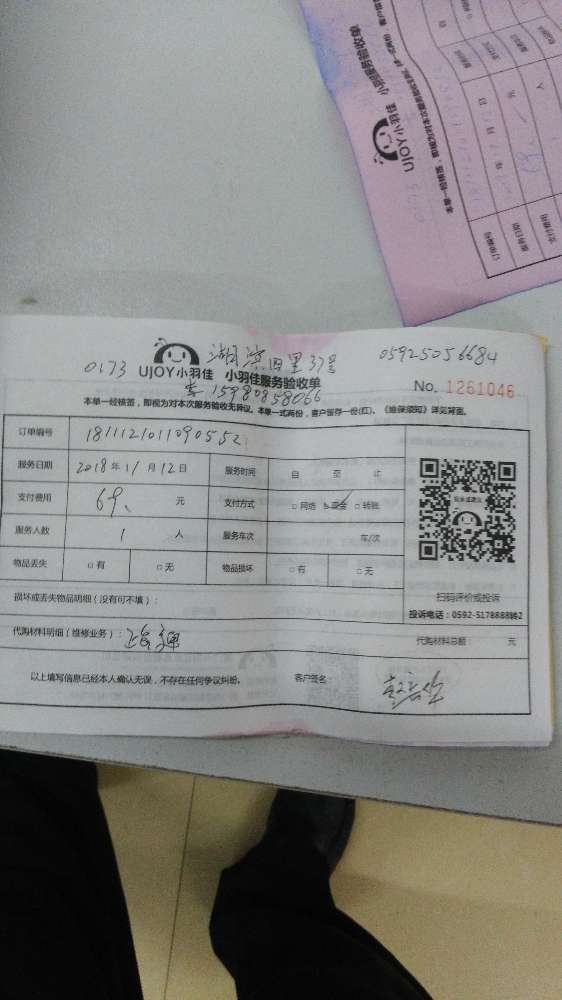 UJOY小羽佳 小羽佳服务验收单
0173
湖滨四里37号
05925056684
UJOY小羽佳 小羽佳服务验收单
15980858066
No. 1261046
本单一经核签，即视为对本次服务验收无异议。本单一式两份，客户留存一份(红)。《维保须知》详见背面。
订单编号 1811121011090552
服务日期 2018年11月12日 服务时间 自 至 止
支付费用 69、 元 支付方式 □网络 □现金 □转账
服务人数 1 人 服务车次 车/次
物品丢失 □有 □无 物品损坏 □有 □无
扫码评价或投诉
投诉电话：0592-5178888转2
损坏或丢失物品明细（没有可不填）：
代购材料明细（维修业务）： 代购材料总额： 元
以上填写信息已经本人确认无误，不存在任何争议纠纷。 客户签名：